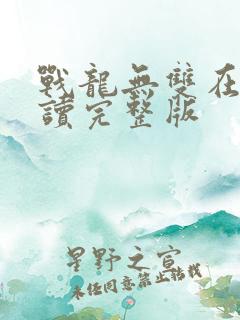 戰龍無雙在
讀完整版
星野之宣
未经同意禁止转载